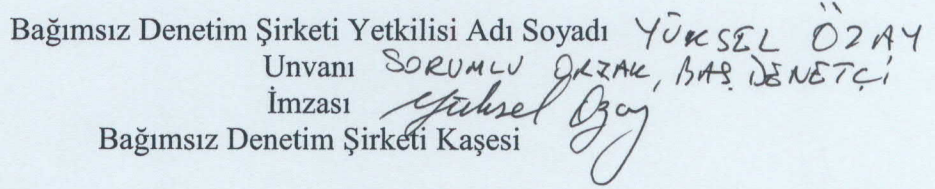 Bağımsız Denetim Şirketi Yetkilisi Adı Soyadı YÜKSEL ÖZAY
Unvanı SORUMLU ORTAK, BAŞ DENETÇİ
İmzası Yüksel Özay
Bağımsız Denetim Şirketi Kaşesi